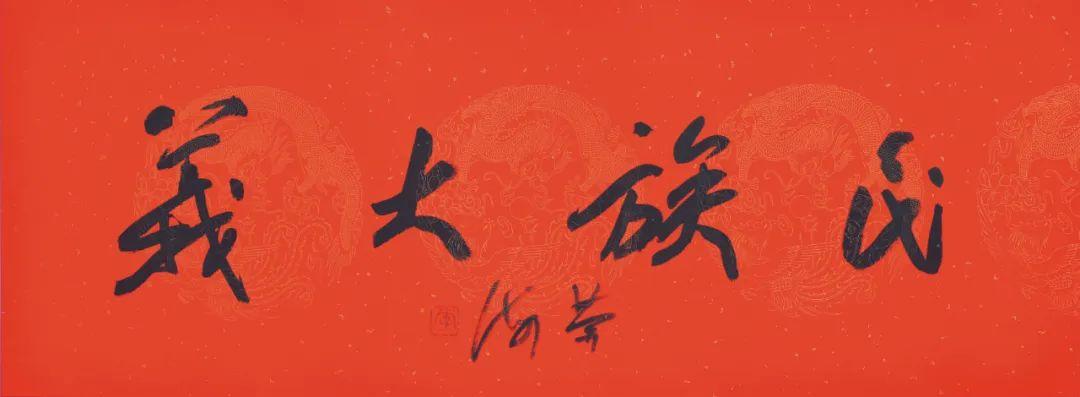 民族大義